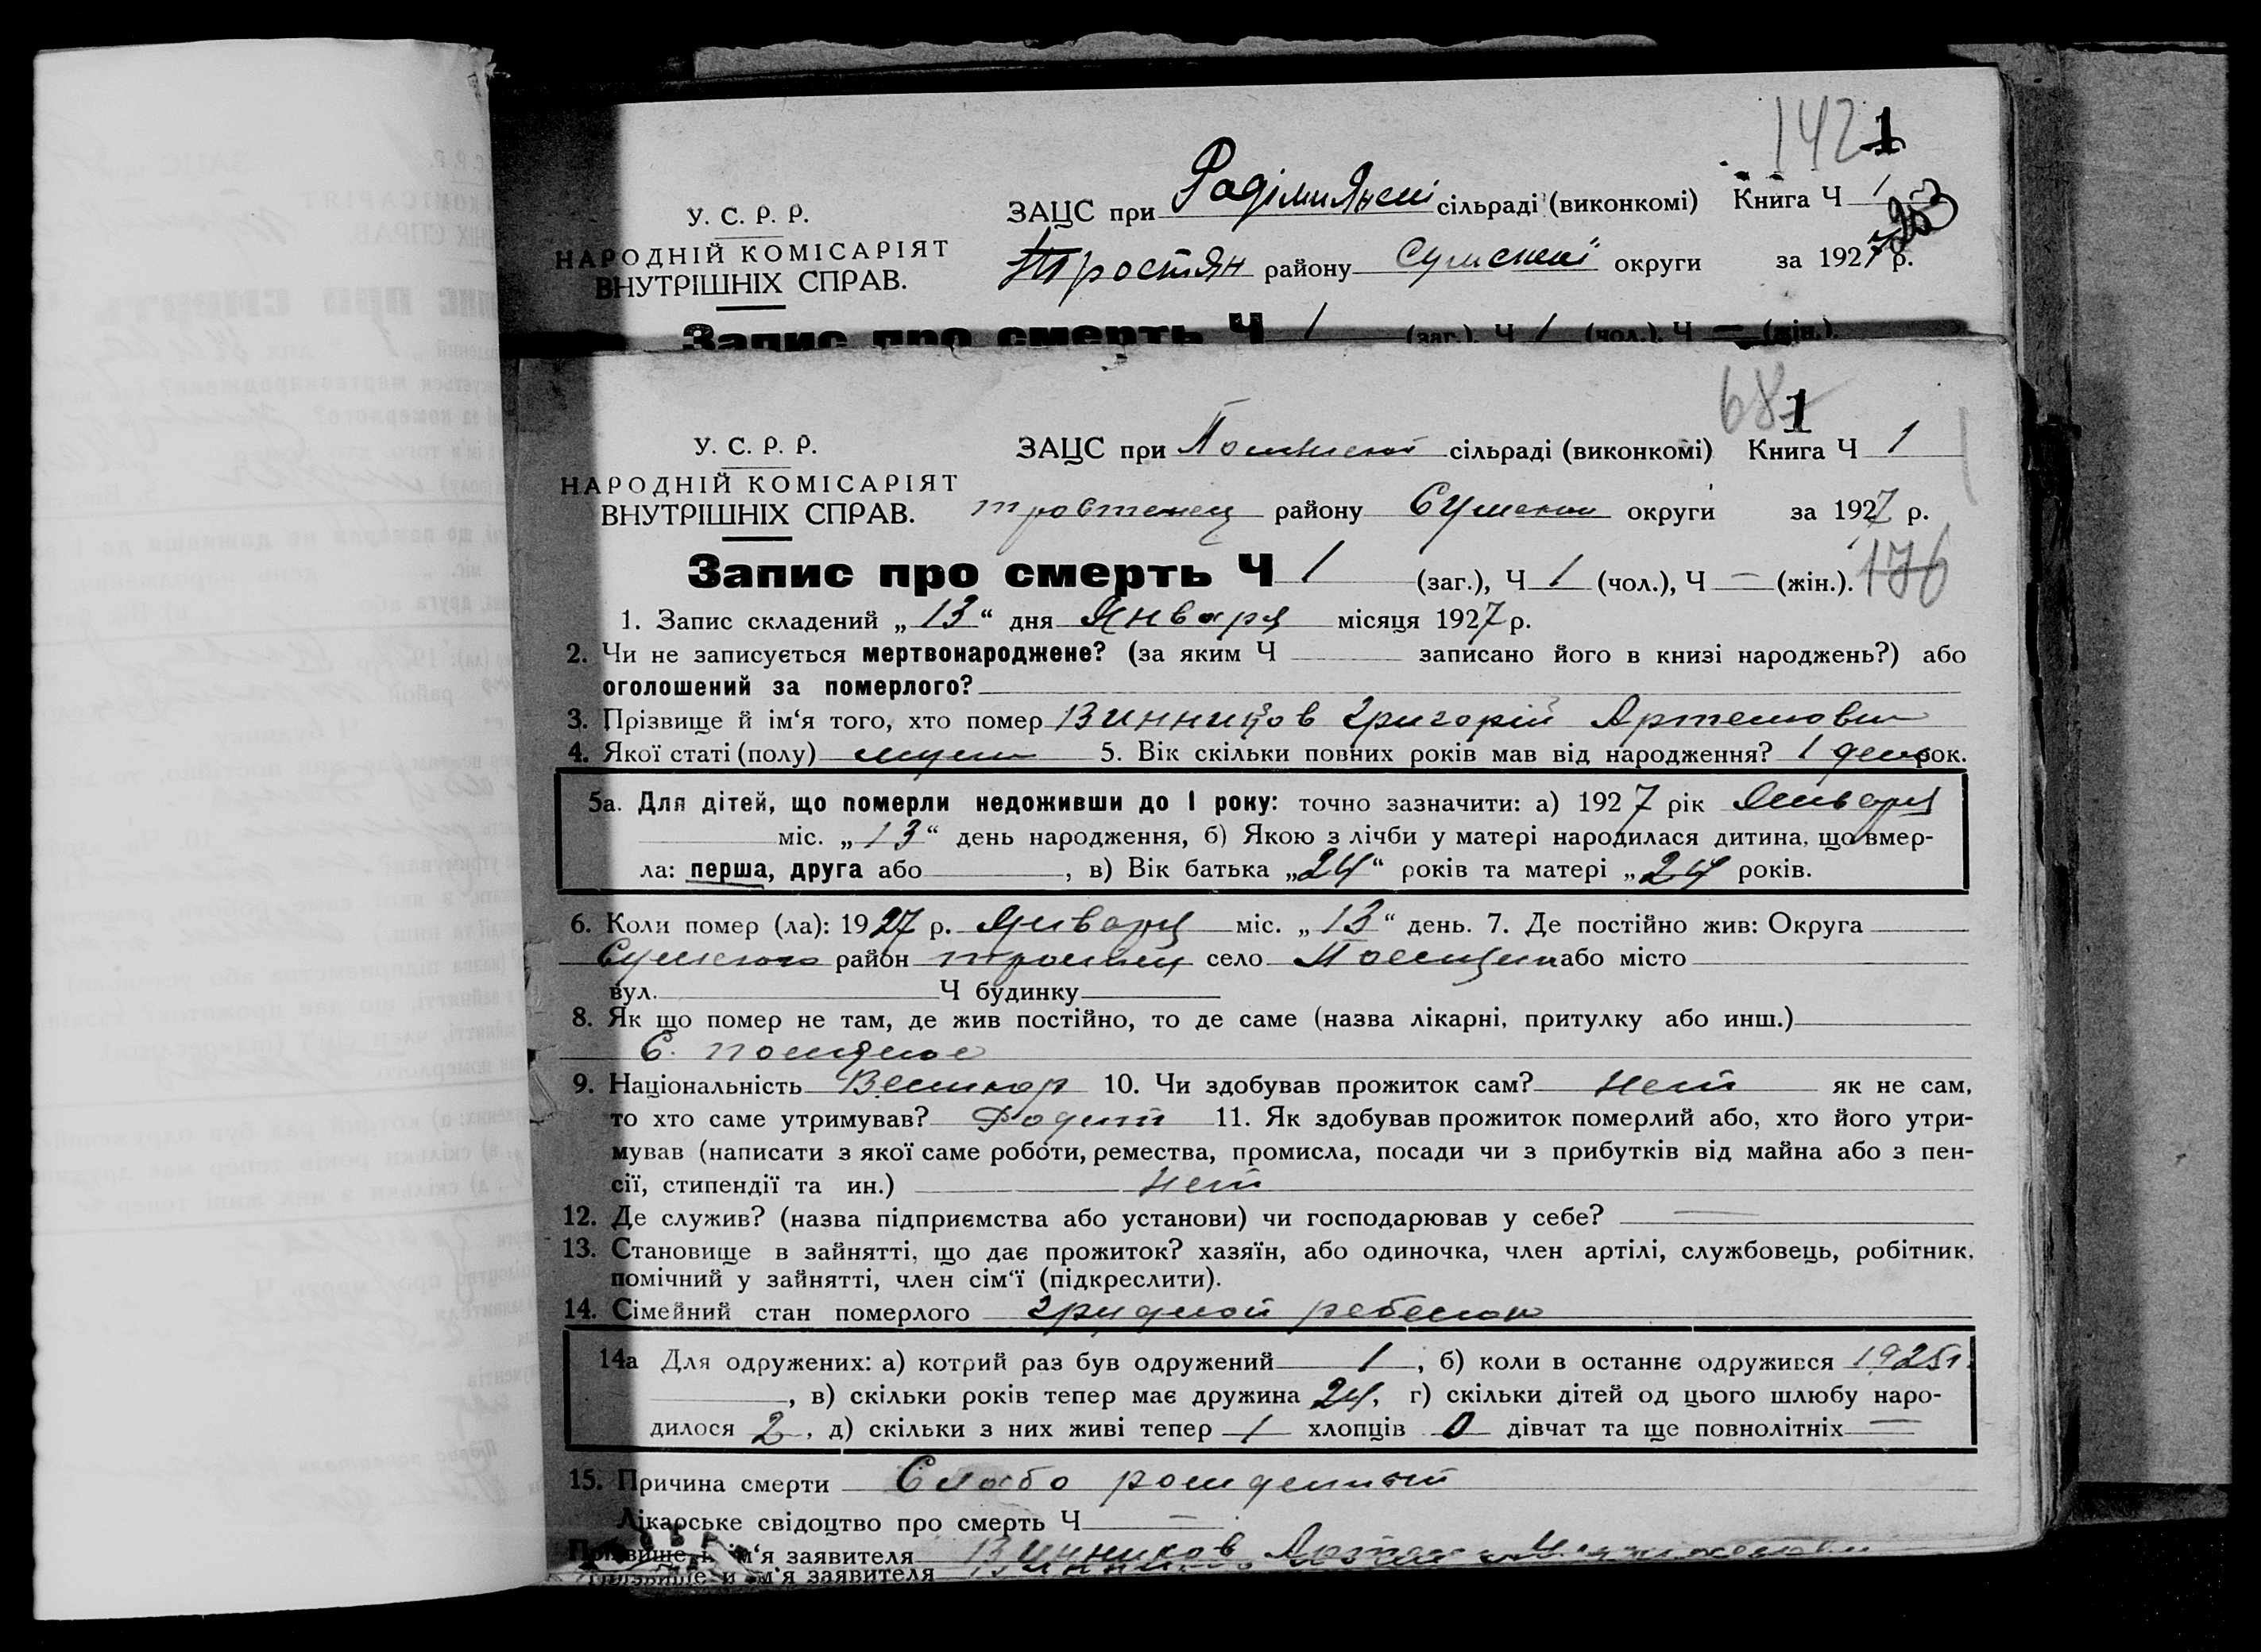 142 1
У. С. Р. Р.
НАРОДНІЙ КОМІСАРІЯТ
ВНУТРІШНІХ СПРАВ.
ЗАЦС при сільраді (виконкомі) Книга Ч 1
Тростян району Сумської округи за 1927 р.
Запис про смерть Ч 1 (заг.), Ч 1 (чол.), Ч — (жін.).
68 1
У. С. Р. Р.
НАРОДНІЙ КОМІСАРІЯТ
ВНУТРІШНІХ СПРАВ.
ЗАЦС при сільраді (виконкомі) Книга Ч 1
тростенец району Сумской округи за 1927 р.
176
Запис про смерть Ч 1 (заг.), Ч 1 (чол.), Ч — (жін.).
1. Запис складений „13“ дня Января місяця 1927 р.
2. Чи не записується мертвонароджене? (за яким Ч записано його в книзі народжень?) або
оголошений за померлого?
3. Прізвище й ім‘я того, хто помер Винников Григорій Артемович
4. Якої статі (полу) муж 5. Вік скільки повних років мав від народження? 1 день рок.
5а. Для дітей, що померли недоживши до 1 року: точно зазначити: а) 1927 рік Января
міс. „13“ день народження, б) Якою з лічби у матері народилася дитина, що вмер-
ла: перша, друга або , в) Вік батька „24“ років та матері „24 років.
6. Коли помер (ла): 1927 р. Января міс. „13“ день. 7. Де постійно жив: Округа
Сумского район село або місто
вул. Ч будинку
8. Як що помер не там, де жив постійно, то де саме (назва лікарні, притулку або инш.)
С.
9. Національність Великор 10. Чи здобував прожиток сам? Нет як не сам,
то хто саме утримував? Родит 11. Як здобував прожиток померлий або, хто його утри-
мував (написати з якої саме роботи, ремества, промисла, посади чи з прибутків від майна або з пен-
сії, стипендії та ин.) Нет
12. Де служив? (назва підприємства або установи) чи господарював у себе? —
13. Становище в зайнятті, що дає прожиток? хазяїн, або одиночка, член артілі, службовець, робітник,
помічний у зайнятті, член сім‘ї (підкреслити).
14. Сімейний стан померлого грудной ребенок
14а Для одружених: а) котрий раз був одружений 1, б) коли в останнє одружився 1925 г.
, в) скільки років тепер має дружина 24, г) скільки дітей од цього шлюбу наро-
дилося 2, д) скільки з них живі тепер 1 хлопців 0 дівчат та ще повнолітніх —
15. Причина смерти Слабо рожденный
Лікарське свідоцтво про смерть Ч —
Прізвище й ім‘я заявителя Винников Артем
Прізвище й ім‘я заявителя